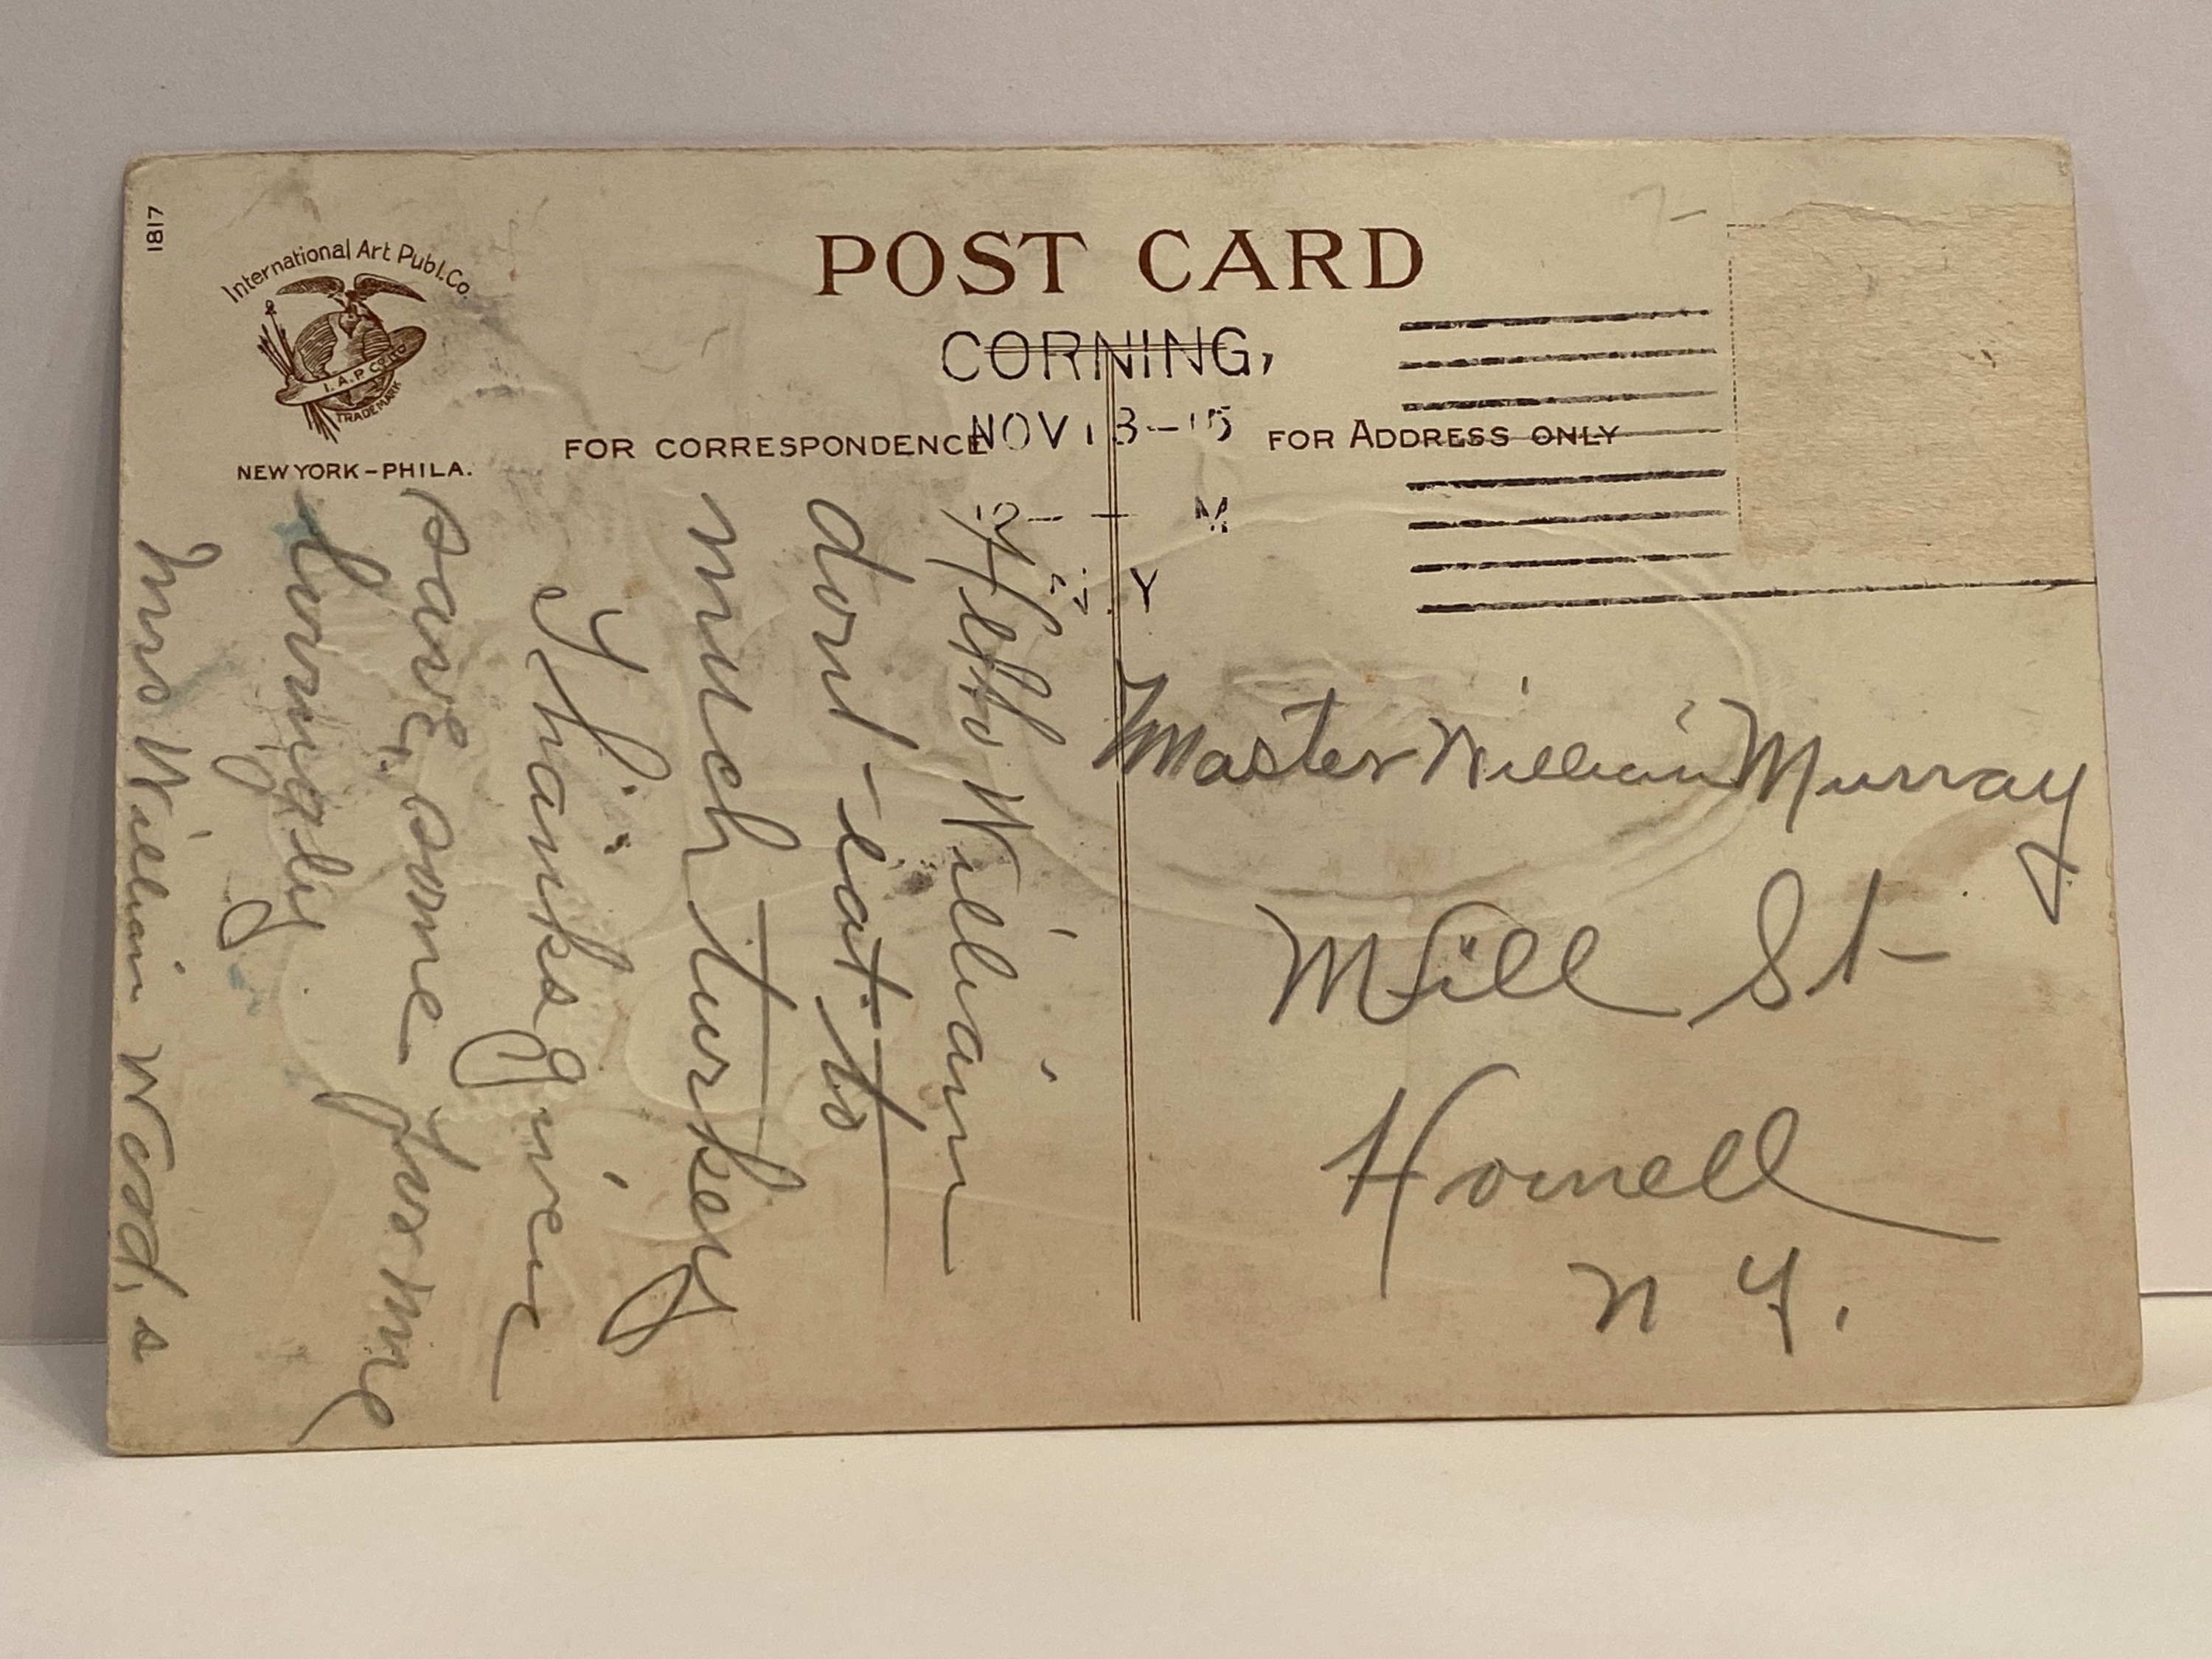 1817
International Art Publ. Co.
I. A. P. Co. LTD
TRADE MARK
NEW YORK-PHILA.
POST CARD
CORNING,
NOV 13-15
12- M
N. Y
FOR CORRESPONDENCE
FOR ADDRESS ONLY
Hello William
dont-eat to
much turkey
Thanksgivin
save some for me
Lovingly
Mrs William Wood,s
Master William Murray
Mill St-
Hornell
N Y.